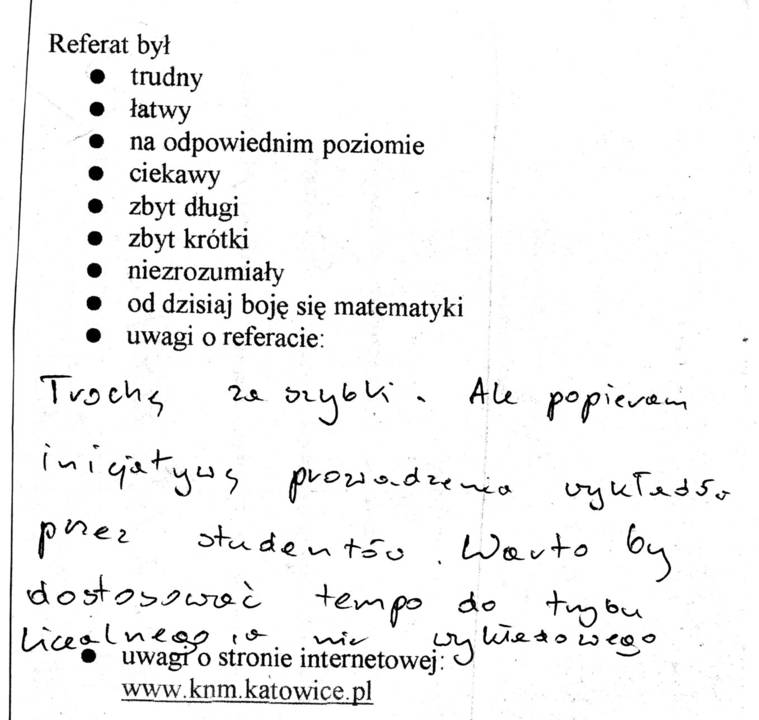 Referat był
● trudny
● łatwy
● na odpowiednim poziomie
● ciekawy
● zbyt długi
● zbyt krótki
● niezrozumiały
● od dzisiaj boję się matematyki
● uwagi o referacie:
Trochę za szybki. Ale popieram
inicjatywę prowadzenia wykładów
przez studentów. Warto by
dostosować tempo do trybu
licealnego a nie wykładowego
● uwagi o stronie internetowej:
www.knm.katowice.pl